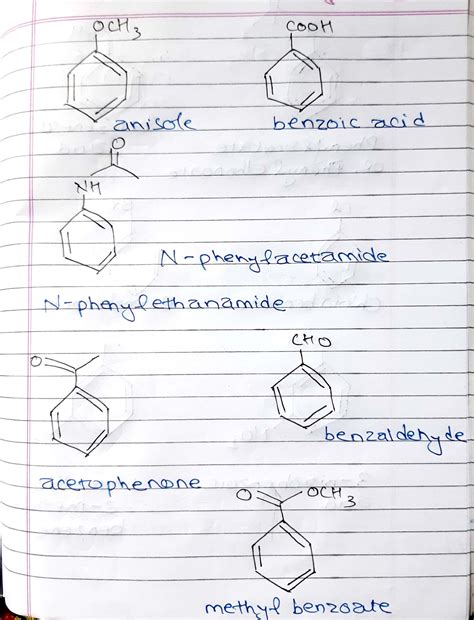 OCH3 COOH
anisole benzoic acid
O
NH
N-phenylacetamide
N-phenylethanamide
CHO
O
benzaldehyde
acetophenone
O OCH3
methyl benzoate